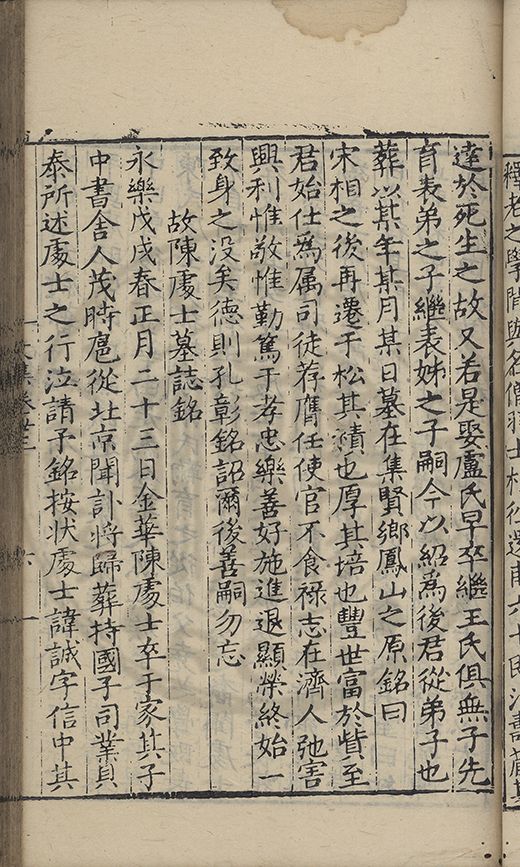 釋老之學間與名僧羽士相徃還甫六十
達於死生之故又若是娶盧氏早卒繼王氏俱無子先
育表弟之子繼表姊之子嗣今以紹爲後君從弟子也
葬以某年某月某日墓在集賢鄉鳳山之原銘曰
宋相之後再遷于松其積也厚其培也豐世富於貲至
君始仕爲属司徒荐膺任使官不食禄志在濟人弛害
興利惟敬惟勤篤于孝忠樂善好施進退顯榮終始一
致身之没矣德則孔彰銘詔爾後善嗣勿忘
故陳䖏士墓誌銘
永樂戊戌春正月二十三日金華陳䖏士卒于家其子
中書舍人茂時扈從北京聞訃將歸葬持國子司業貝
泰所述䖏士之行泣請予銘按状䖏士諱誠字信中其
文集卷廿三
六